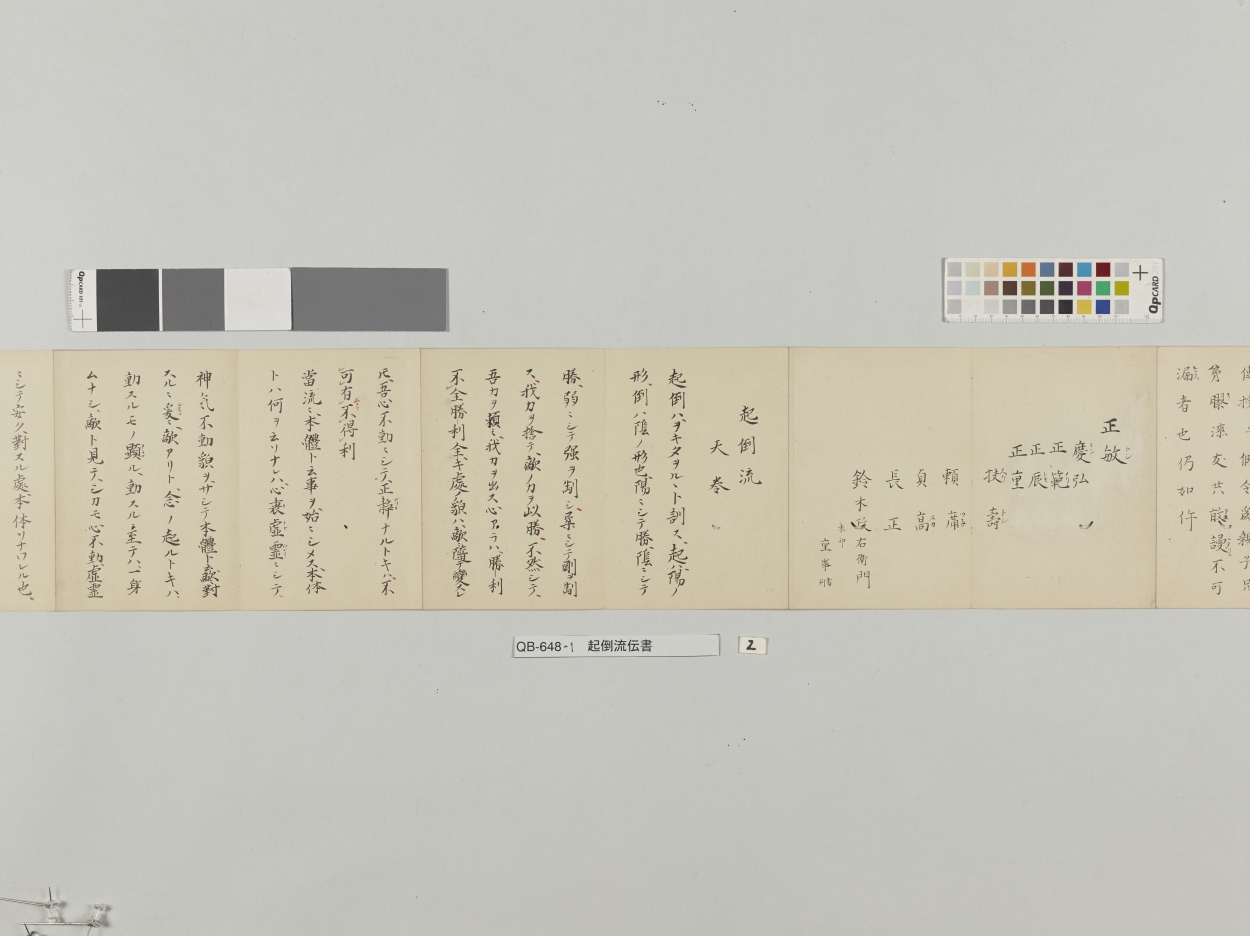 漏者也仍如件
正敏
慶弘
正範
正辰
正重
扶壽
頼庸
貞高
長正
鈴木政右衛門
起倒流
天巻
起倒ハヲキタヲルヽト訓ス、起ハ陽ノ
形、倒ハ陰ノ形也、陽ニシテ勝、陰ニシテ
勝、弱ニシテ强ヲ制シ、柔ニシテ剛ヲ制
ス、我力ヲ捨テ、敵ノ力ヲ以勝、不然シテ、
吾力ヲ頼ミ、我力ヲ出ス心アラハ、勝利
不全、勝利全キ處ノ貌ハ、敵 變ス
氏、吾心不動ニシテ、正静ナルトキハ、不
可有不得利
當流ニ本體ト云事ヲ始ニシメス、本体
トハ何ヲ云リナレハ、心裏虚靈ニシテ、
神氣不動貌ヲサシテ本體ト、敵對
スルニ、爰ニ敵アリト、念ノ起ルトキハ、
動スルモノ顕ル、動スルニ至テハ、一身
ムナシ、敵ト見テ、シカモ心不動、虚靈
ミシテ安ク、對スル處、本体リナワレル也、
QpCARD 101
QpCARD
QB-648-1 起倒流伝書
2